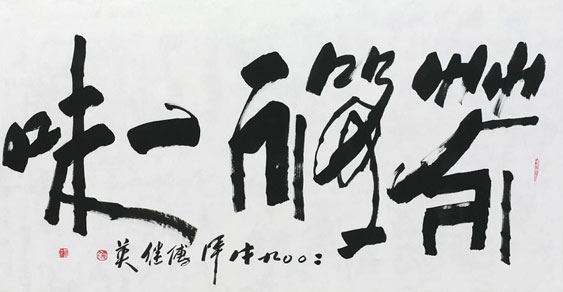 茶禪一味
二〇〇九年傅继英